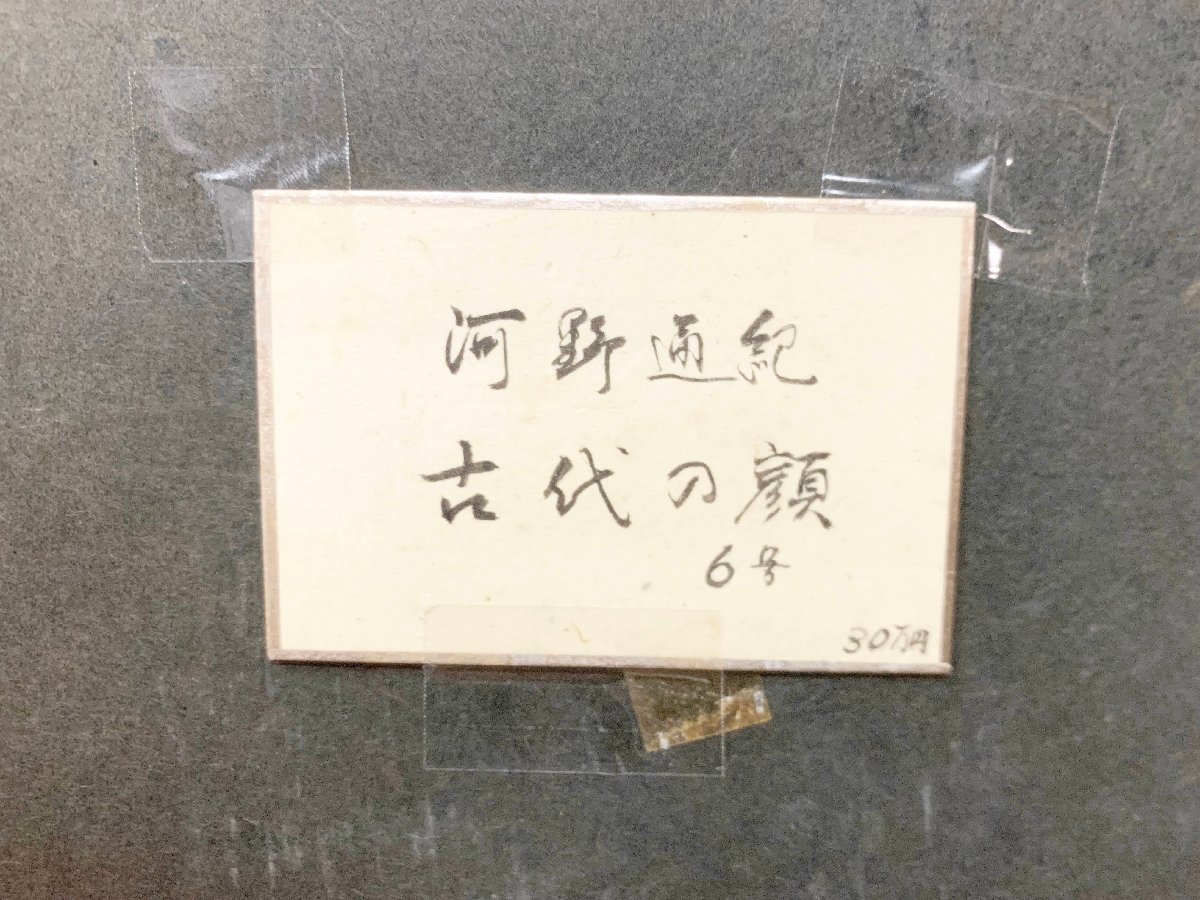 河野通紀
古代の顔
6号
30万円